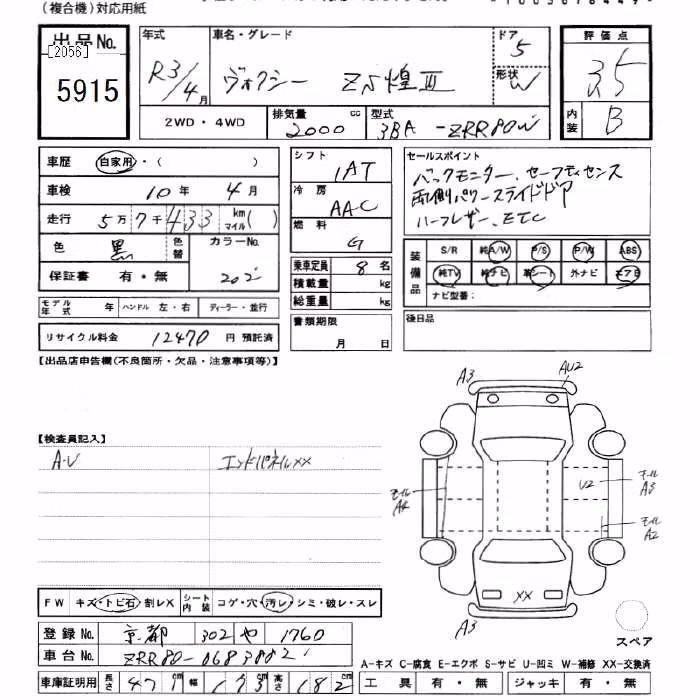 (複合機)対応用紙
出品No. [2056] 5915
年式 R3/4月
車名・グレード ヴォクシー ZS煌Ⅲ
ドア 5
形状 W
評価点 3.5
内装 B
2WD・4WD
排気量 2000 cc
型式 3BA-ZRR80W
車歴 自家用・( )
車検 10年 4月
走行 5万7千433 km マイル( )
色 黒 色替 カラーNo. 202
保証書 有・無
モデル年式 年 ハンドル 左・右 ディーラー・並行
リサイクル料金 12470円 預託済
シフト 1AT
冷房 AAC
燃料 G
乗車定員 8名
積載量 kg
総重量 kg
書類期限 月 日
セールスポイント
バックモニター、セーフティセンス
両側パワースライドドア
ハーフレザー、ETC
装備品 S/R 純A/W P/S P/W ABS
純TV 純ナビ 革シート 外ナビ エアB
ナビ型番:
後日品
【出品店申告欄(不良箇所・欠品・注意事項等)】
【検査員記入】
A-U エンドパネルXX
A3 AU2
モール A4
U2
モール A3
モール A2
XX
A3
スペア
FW キズ・トビ石・割レX シート内装 コゲ・穴・汚レ・シミ・破レ・スレ
登録No. 京都 302 や 1760
車台No. ZRR80-0683882
車庫証明用 長さ 471cm 幅 173cm 高さ 182
A-キズ C-腐食 E-エクボ S-サビ U-凹ミ W-補修 XX-交換済
工具 有・無 ジャッキ 有・無